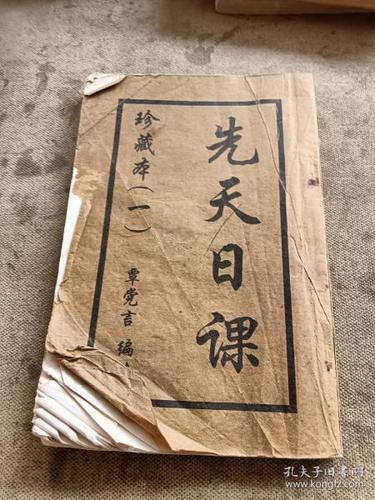 先天日课
珍藏本（一）
覃党言 编
孔夫子旧书网
www.kongfz.com